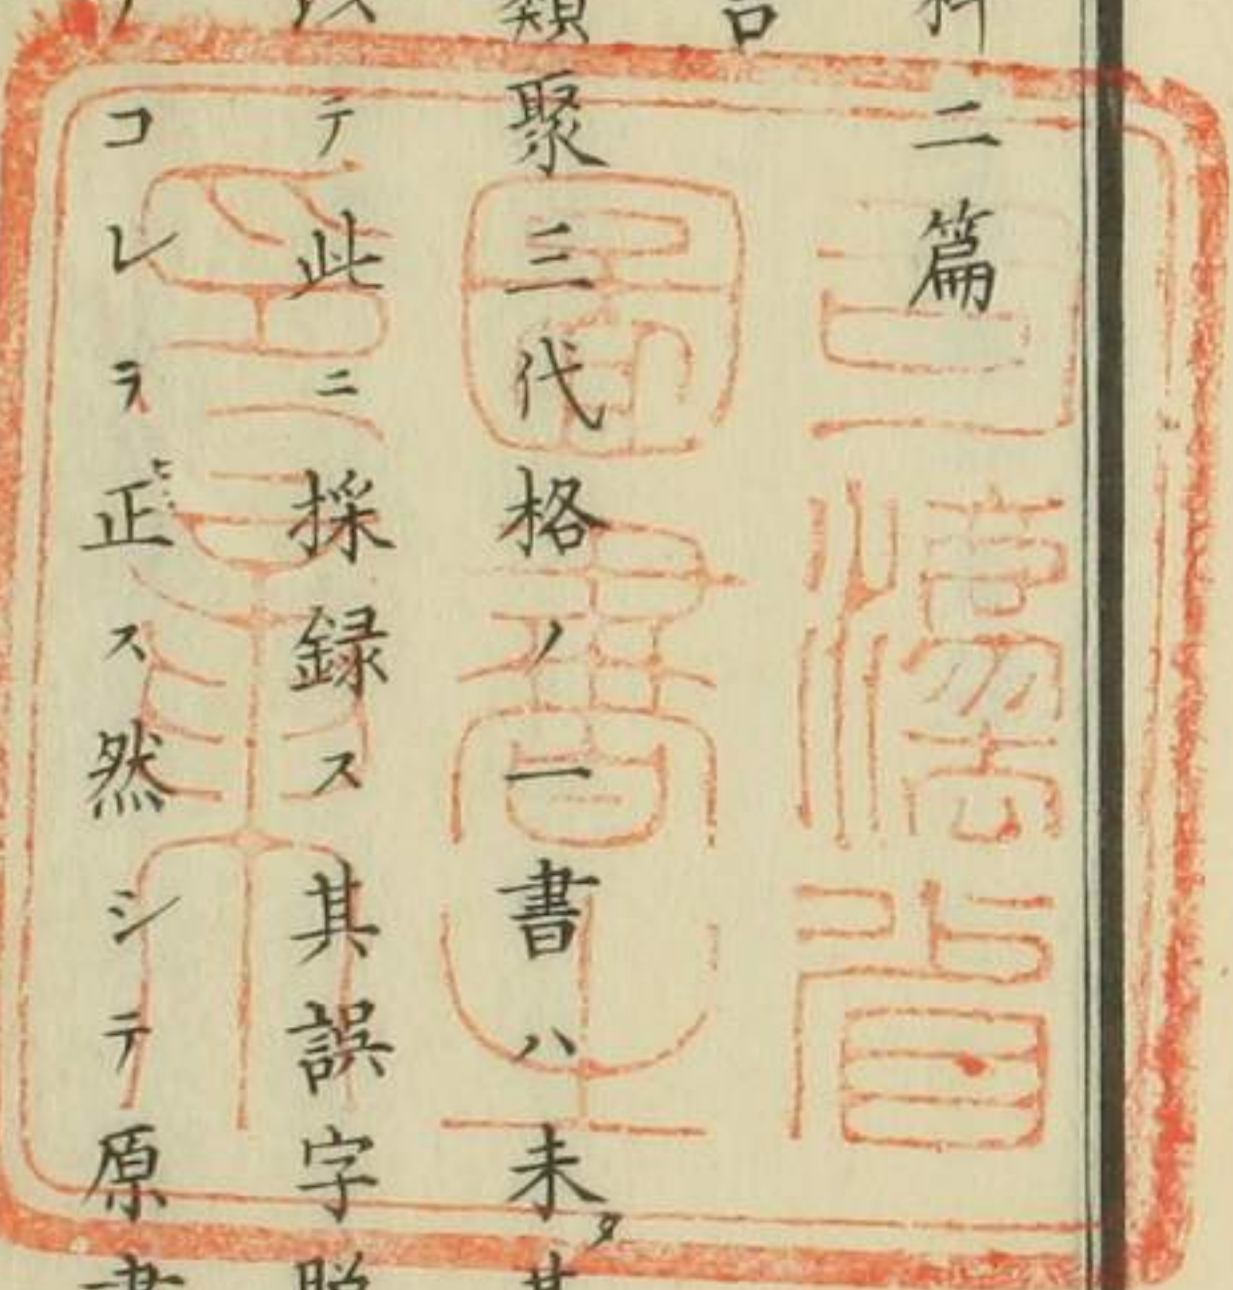 二篇
類聚三代格ノ一書ハ未タ其
テ此ニ採録ス其誤字脱
コレヲ正ス然シテ原書
司灋省
圖書之